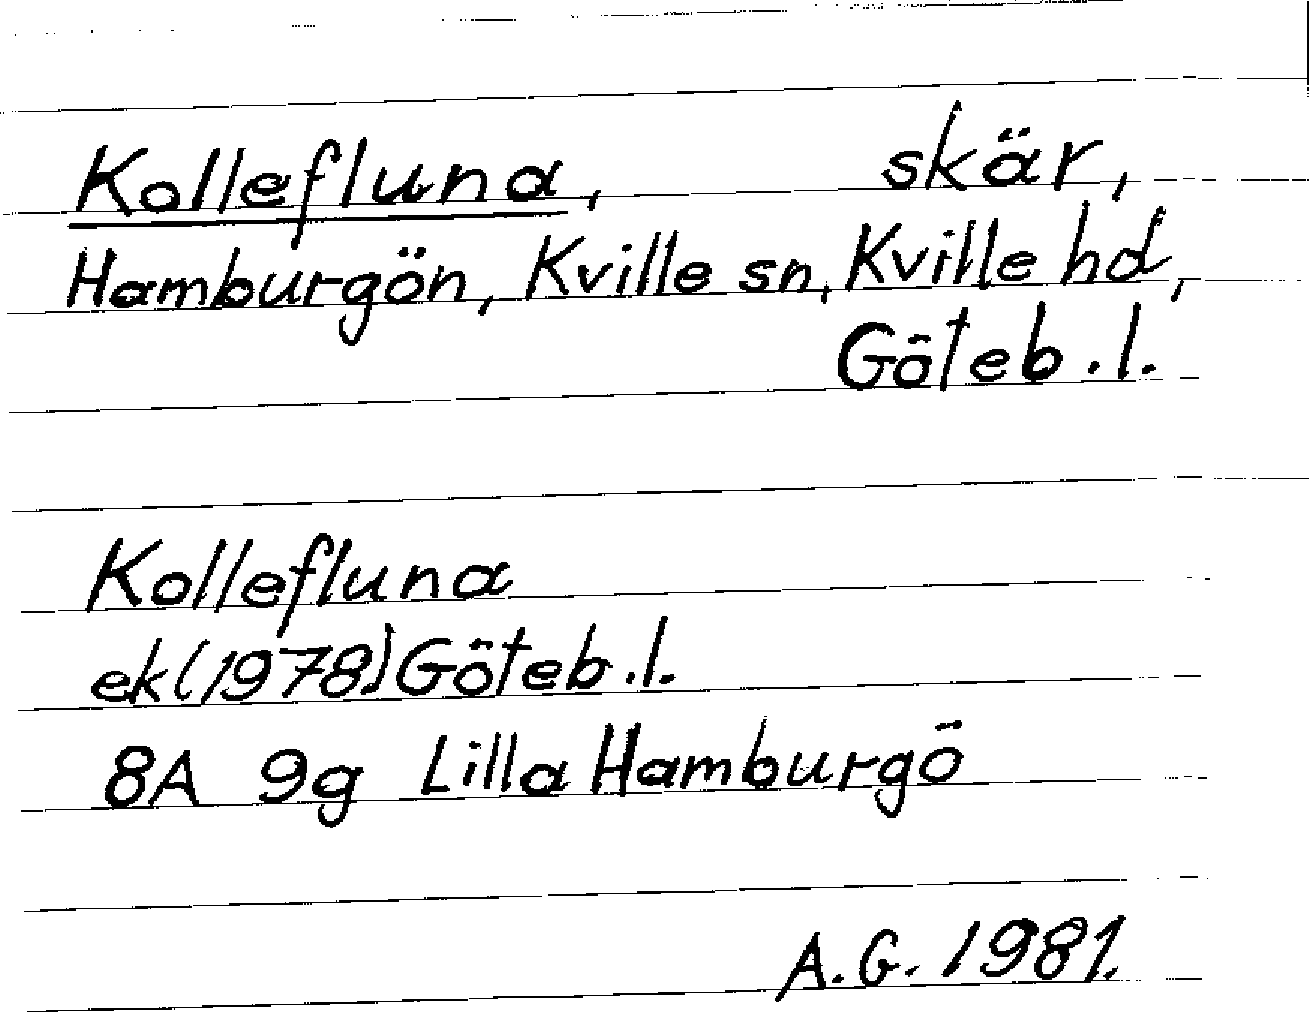 Kollefluna, skär,
Hamburgön, Kville sn, Kville hd,
Göteb.l.
Kollefluna
ek(1978)Göteb.l.
8A 9g Lilla Hamburgö
A.G. 1981.